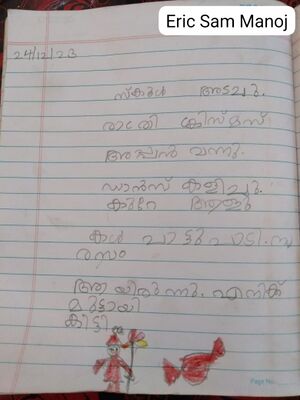 Eric Sam Manoj
24/12/23
സ്കൂൾ അടച്ചു.
രാത്രി ക്രിസ്മസ്
അപ്പൻ വന്നു.
ഡാൻസ് കളിച്ചു.
കുറേ ആളു
കൾ പാട്ടു പാടി. ന
രസം
ആയിരുന്നു. എനിക്ക്
മുട്ടായി
കിട്ടി.
Page No.